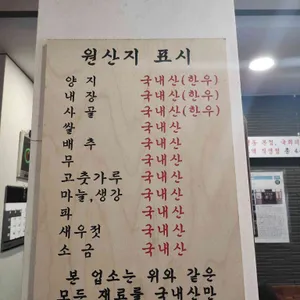 원산지 표시
양 지 국내산(한우)
내 장 국내산(한우)
사 골 국내산(한우)
쌀 국내산
배 추 국내산
무 국내산
고춧가루 국내산
마늘,생강 국내산
파 국내산
새우젓 국내산
소 금 국내산
본 업소는 위와 같은
모든 재료를 국내산만